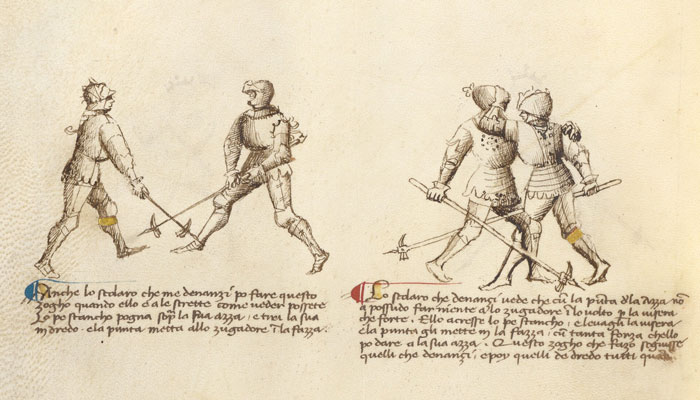 Anche lo scolaro che me denanzi po fare questo
zogho quando ello e a le strette come veder possete
Lo pe stancho pogna sopra la sua azza, e trai la sua
in dredo. e la punta metta allo zugadore in la fazza.
Lo scolaro che denançi vede che cum la punta dela azza no
a possudo far niente a lo zugadore in lo volto per la visera
che forte. Ello acresse lo pe stancho, e levagli la visera
e la punta gli mette in la fazza, cum tanta forza ch'ello
po dare a la sua azza. Questo zogho che fazo seguisse
quelli che denançi, e poy quelli de dredo tutti quanti